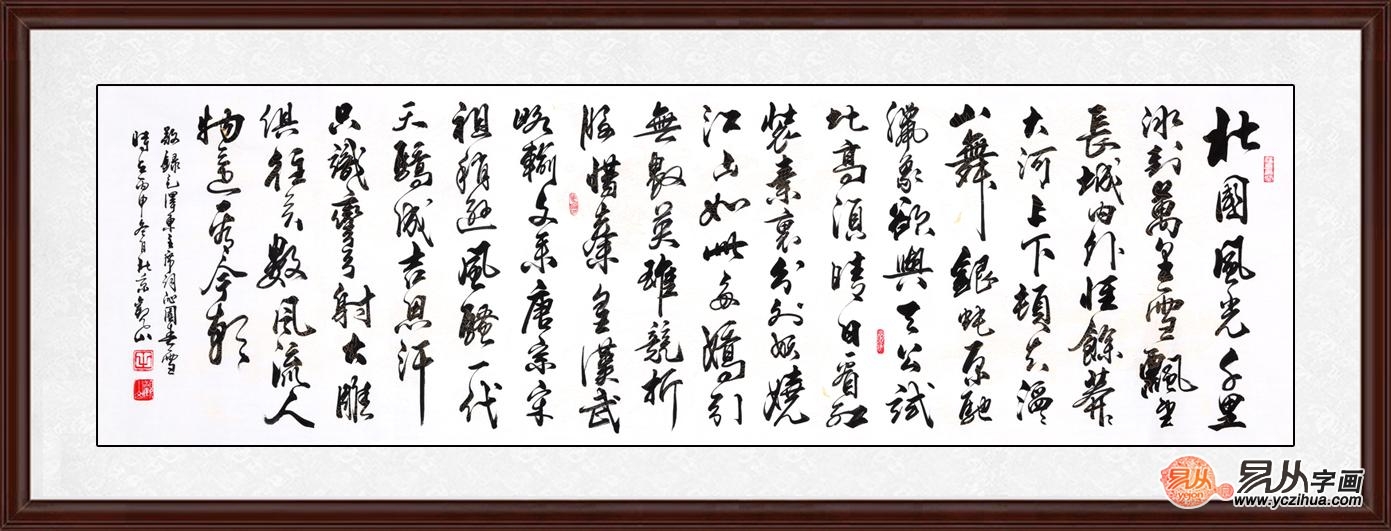 北國風光千里
冰封萬里雪飄望
長城內外惟餘莽々
大河上下頓失滔々
山舞銀蛇原馳
蠟象欲與天公試
比高須晴日看紅
裝素裹分外妖嬈
江山如此多嬌引
無數英雄競折
腰惜秦皇漢武
略輸文采唐宗宋
祖稍遜風騷一代
天驕成吉思汗
只識彎弓射大雕
俱往矣數風流人
物還看今朝
敬錄毛澤東主席詞沁園春雪
時在丙申冬月
易从
yejon
易从字画
www.yczihua.com